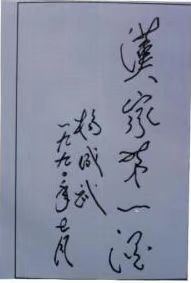 漢家第一酒
楊成武
一九九〇年七月